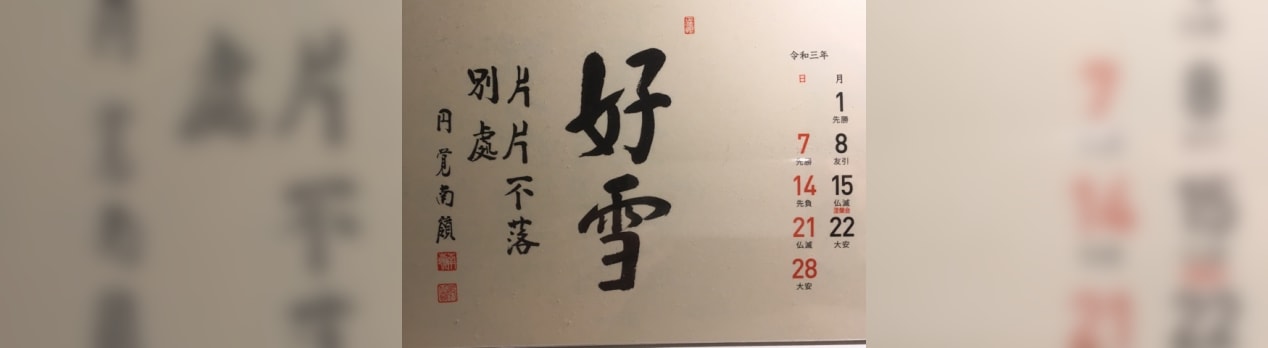 令和三年
日 月
1
先勝
7 8
先勝 友引
14 15
先負 仏滅
涅槃会
21 22
仏滅 大安
28
大安
好雪
片片不落
別處
円覚南嶺